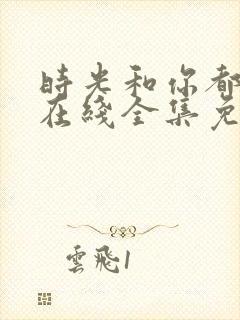 時光和你都
在綫全集免
雲飛1